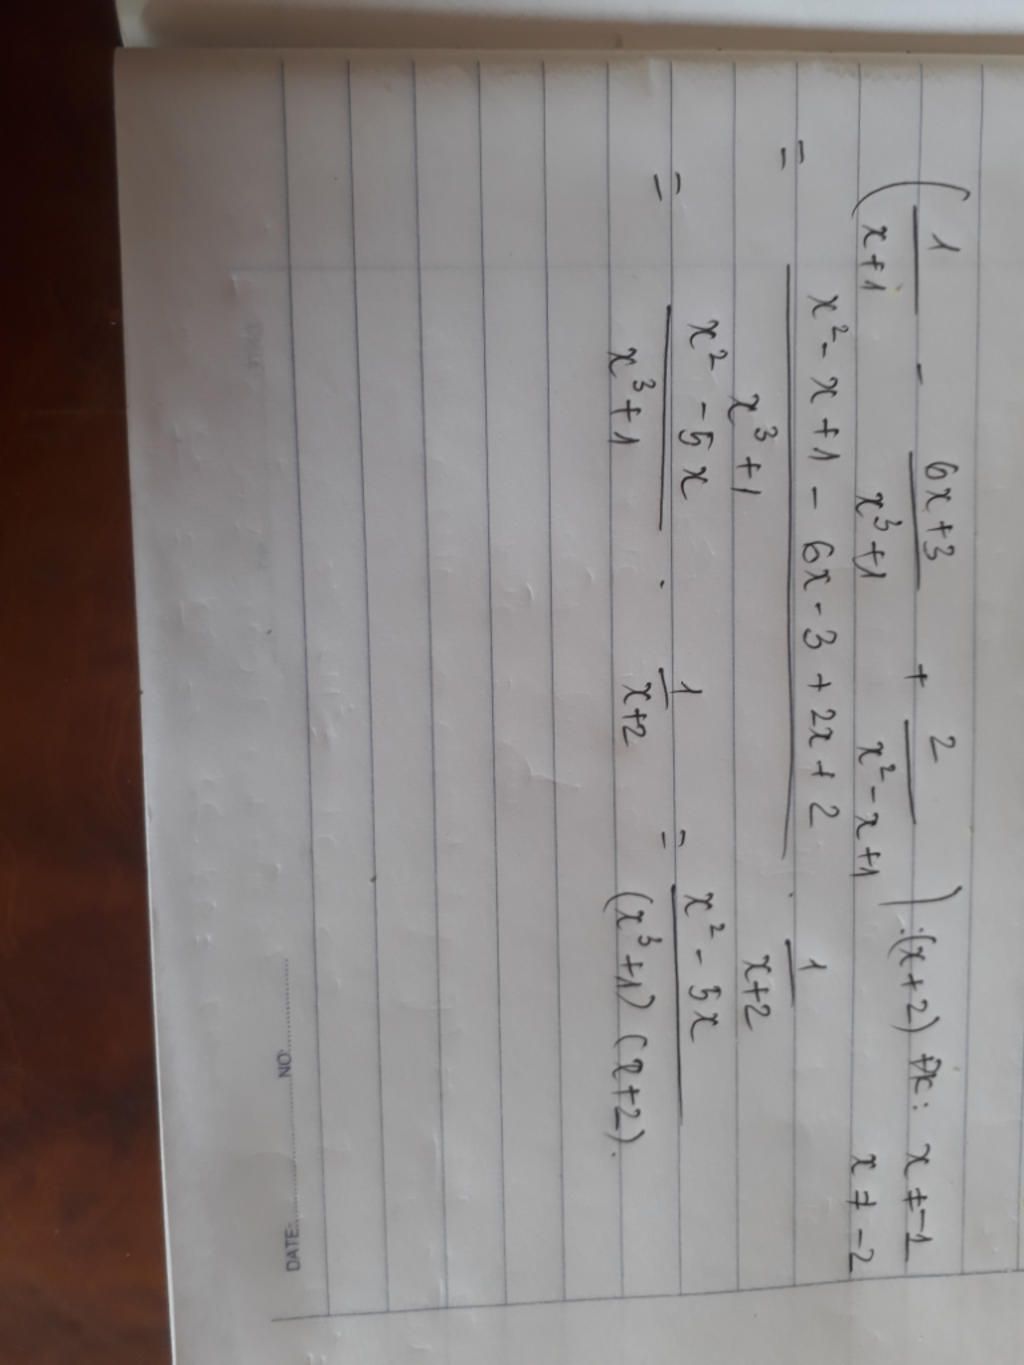 ( 1/(x+1) - (6x+3)/(x³+1) + 2/(x²-x+1) ) : (x+2) ĐK: x ≠ -1
x ≠ -2
= (x² - x + 1 - 6x - 3 + 2x + 2)/(x³+1) . 1/(x+2)
= (x² - 5x)/(x³+1) . 1/(x+2) = (x² - 5x)/((x³+1)(x+2)).
NO:
DATE: